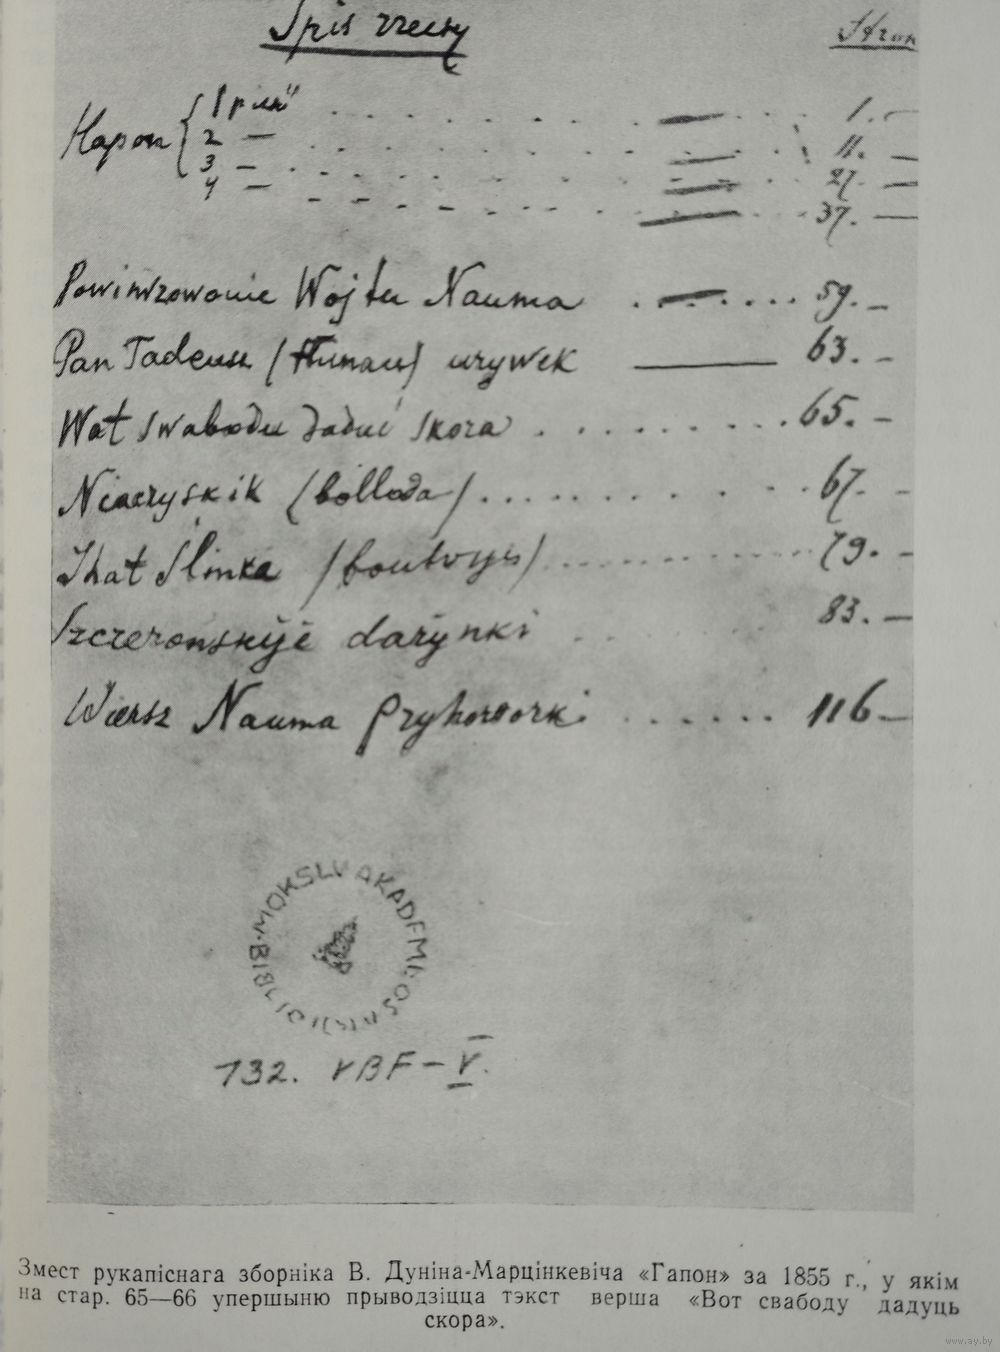 Spis rzeczy Stron
Hapon { 1 pieśń . . . . . . . . 1. —
2 — . . . . . . . . 11. —
3 — . . . . . . . . 27. —
4 — . . . . . . . . 37. —
Powinszowanie Wojtu Nauma . . . . . . 59. —
Pan Tadeusz (Tłumacz) urywek ——— 63. —
Wot swabodu daduć skora . . . . . . . . . 65. —
Nieczyskik (bollada) . . . . . . . . . 67. —
Ihat Slinka ( ) . . . . . . . . . 79. —
Szczerouskije darynki . . . . . 83. —
Wiersz Nauma Pryhoworki . . . . . . 116 —
BIBLIOTEKA MOKSLŲ AKADEMIJOS
132. VBF — V.
Змест рукапіснага зборніка В. Дуніна-Марцінкевіча «Гапон» за 1855 г., у якім
на стар. 65—66 упершыню прыводзіцца тэкст верша «Вот свабоду дадуць
скора».
www.ay.by